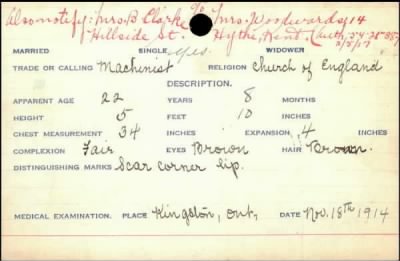 Also notify: Mrs. B. Clarke c/o Mrs. Woodwards, 14
Hillside St. Hythe, Kent. (Auth. 54-
MARRIED SINGLE yes. WIDOWER
TRADE OR CALLING Machinist RELIGION Church of England
DESCRIPTION.
APPARENT AGE 22 YEARS 8 MONTHS
HEIGHT 5 FEET 10 INCHES
CHEST MEASUREMENT 34 INCHES EXPANSION 4 INCHES
COMPLEXION Fair EYES Brown HAIR Brown.
DISTINGUISHING MARKS Scar corner lip.
MEDICAL EXAMINATION. PLACE Kingston, Ont, DATE Nov. 18th 1914